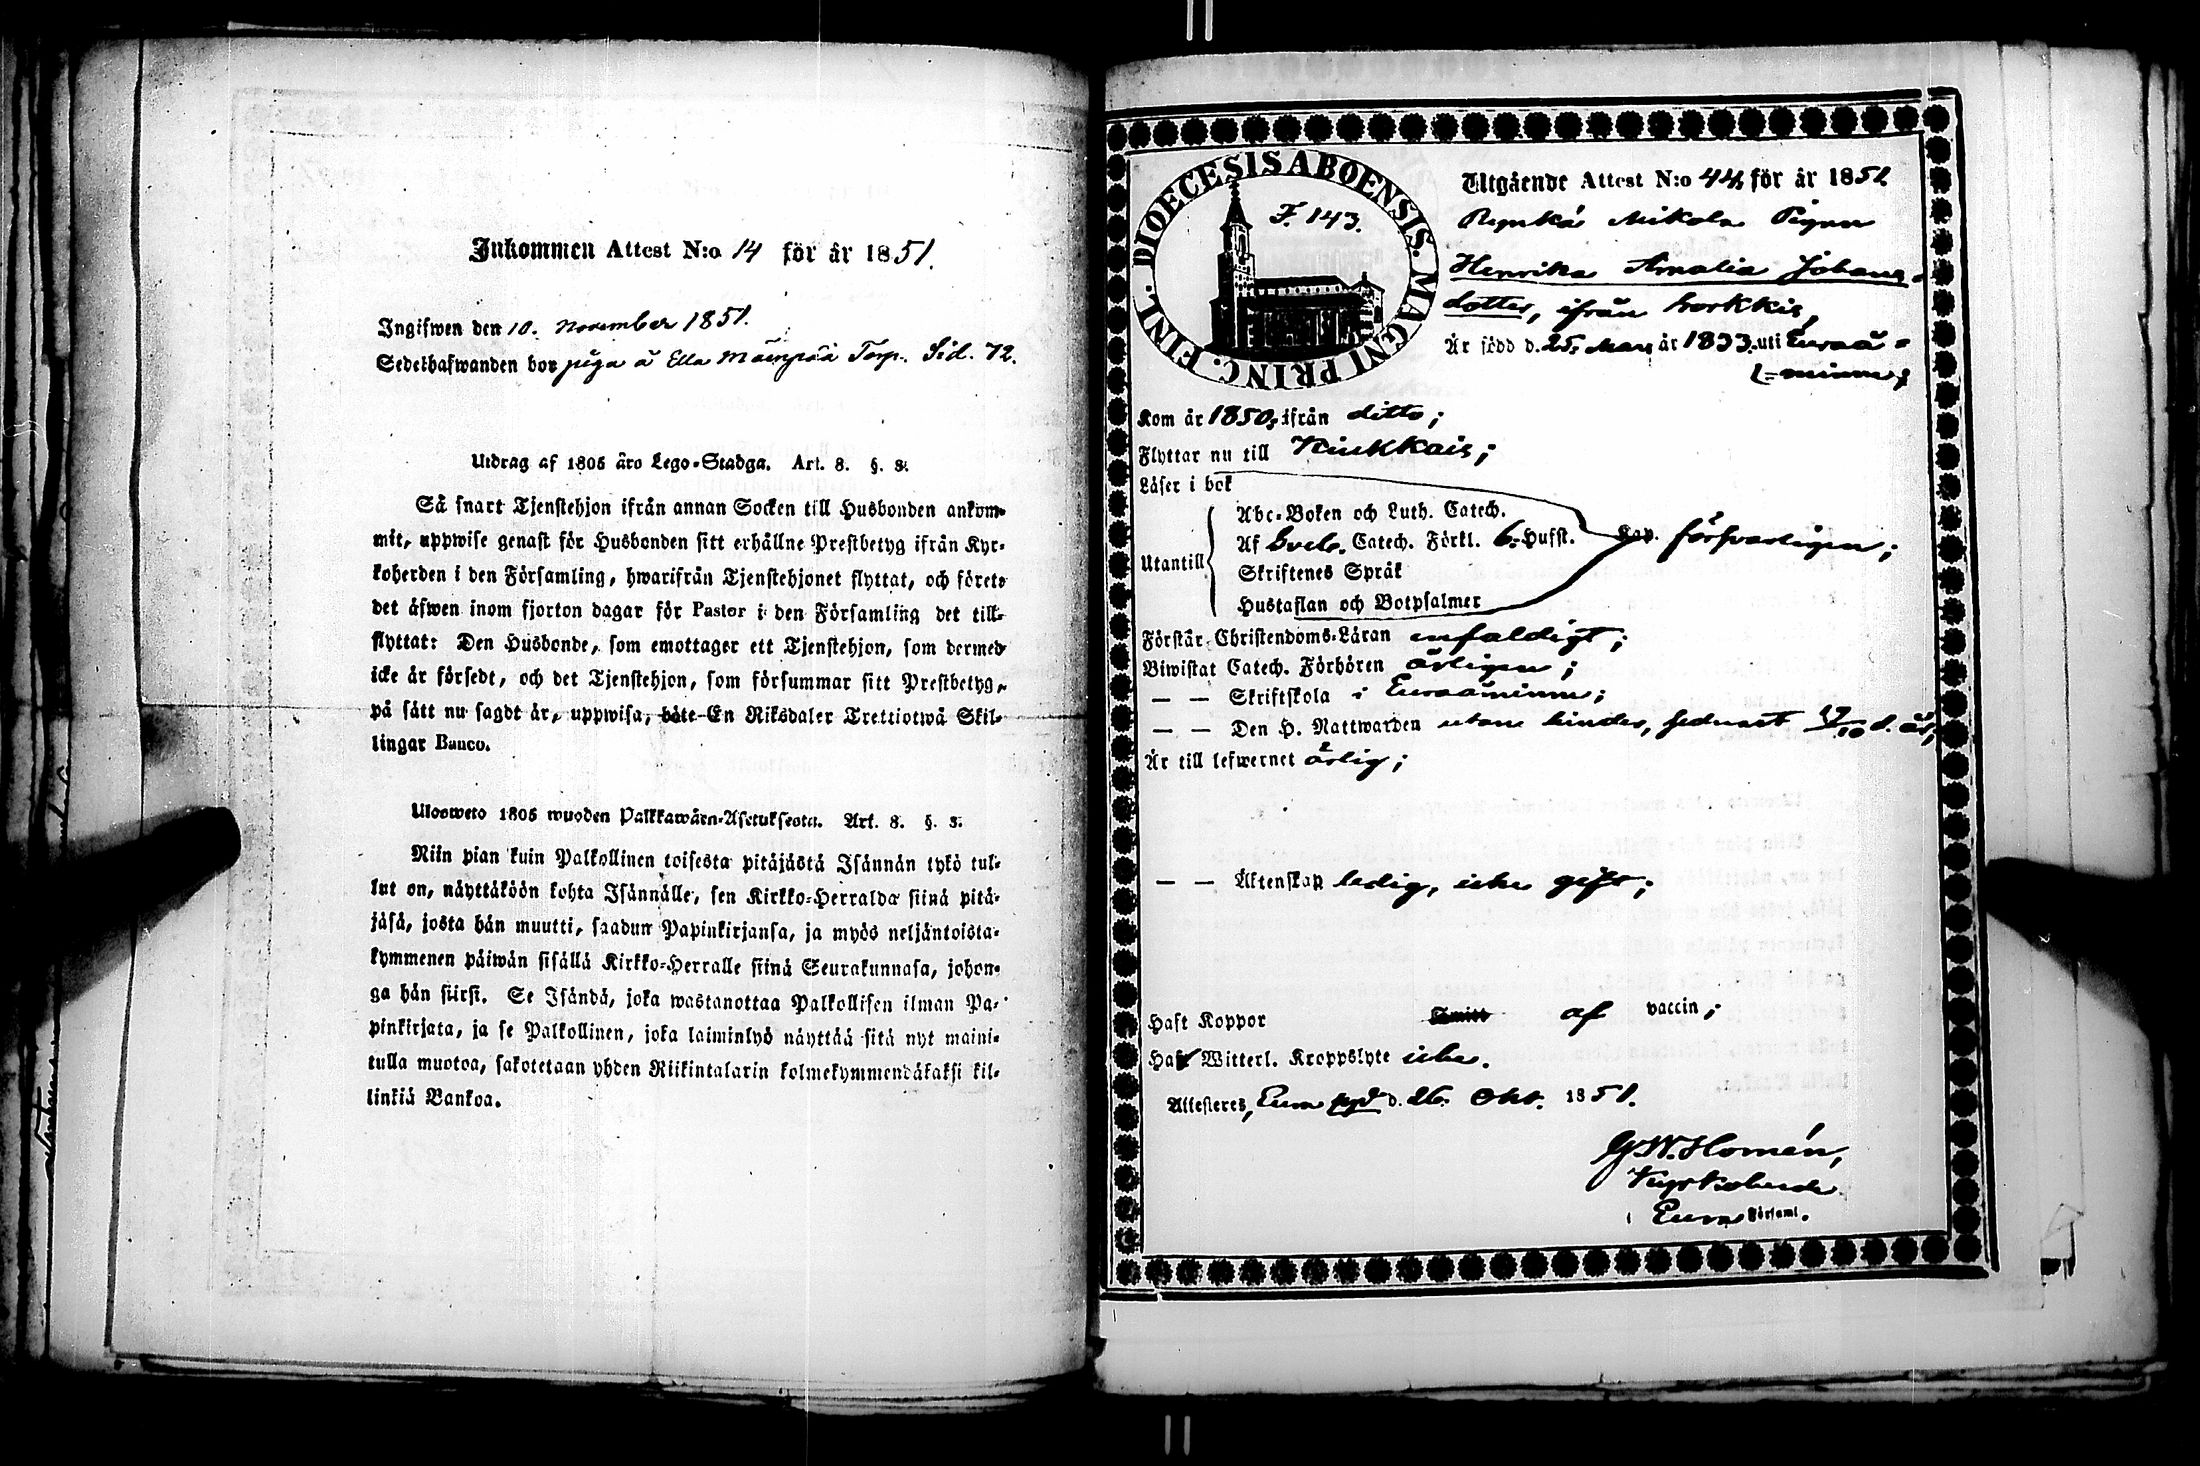 Inkommen Attest N:o 14 för år 1851.
Ingifwen den 10. November 1851.
Sedelhafwanden bor piga å Ella Mäenpää Torp. Sid. 72.
Utdrag af 1805 års Lego-Stadga. Art. 8. §. 3.
Så snart Tjenstehjon ifrån annan Socken till Husbonden ankom-
mit, uppwise genast för Husbonden sitt erhållne Prestbetyg ifrån Kyr-
koherden i den Församling, hwarifrån Tjenstehjonet flyttat, och förete
det äfwen inom fjorton dagar för Pastor i den Församling det till-
flyttat: Den Husbonde, som emottager ett Tjenstehjon, som dermed
icke är försedt, och det Tjenstehjon, som försummar sitt Prestbetyg,
på sätt nu sagdt är, uppwisa, böte En Riksdaler Trettiotwå Skil-
lingar Banco.
Ulosweto 1805 wuoden Palkkawäen-Asetuksesta. Art. 8. §. 3.
Niin pian kuin Palkollinen toisesta pitäjästä Isännän tykö tul-
lut on, näyttäköön kohta Isännälle, sen Kirkko-Herralda siinä pitä-
jäsä, josta hän muutti, saadun Papinkirjansa, ja myös neljäntoista-
kymmenen päiwän sisällä Kirkko-Herralle siinä Seurakunnasa, johon-
ga hän siirsi. Se Isändä, joka wastanottaa Palkollisen ilman Pa-
pinkirjata, ja se Palkollinen, joka laiminlyö näyttää sitä nyt maini-
tulla muotoa, sakotetaan yhden Riikintalarin kolmekymmendäkaksi kil-
linkiä Bankoa.
DIOECESIS ABOENSIS. MAGNI PRINC. FINL.
F. 143.
Utgående Attest N:o 44, för år 1851
Mikola Pigan
Henrika Amalia Johans-
dotter, ifrån
Är född d. 25. år 1833 uti Euraå-
minne;
Kom år 1850, ifrån ditto;
Flyttar nu till Kiukkais;
Läser i bok
Abc-Boken och Luth. Catech.
Utantill Af Sveb. Catech. Förkl. 6. Hufst. Kap. försvarligen;
Skriftenes Språk
Hustaflan och Botpsalmer
Förstår Christendoms-Läran enfaldigt;
Biwistat Catech. Förhören årligen;
— — Skriftskola i Euraåminne;
— — Den H. Nattwarden utan hinder, senast 19/10 d. år;
Är till lefwernet ärlig;
— — Äktenskap ledig, icke gift;
Haft Koppor af vaccin;
Haft Witterl. Kroppslyte icke.
Attesteres, Eura d. 26. Okt. 1851.
G.W. Homén,
Kyrkoherde
i Eura Församl.